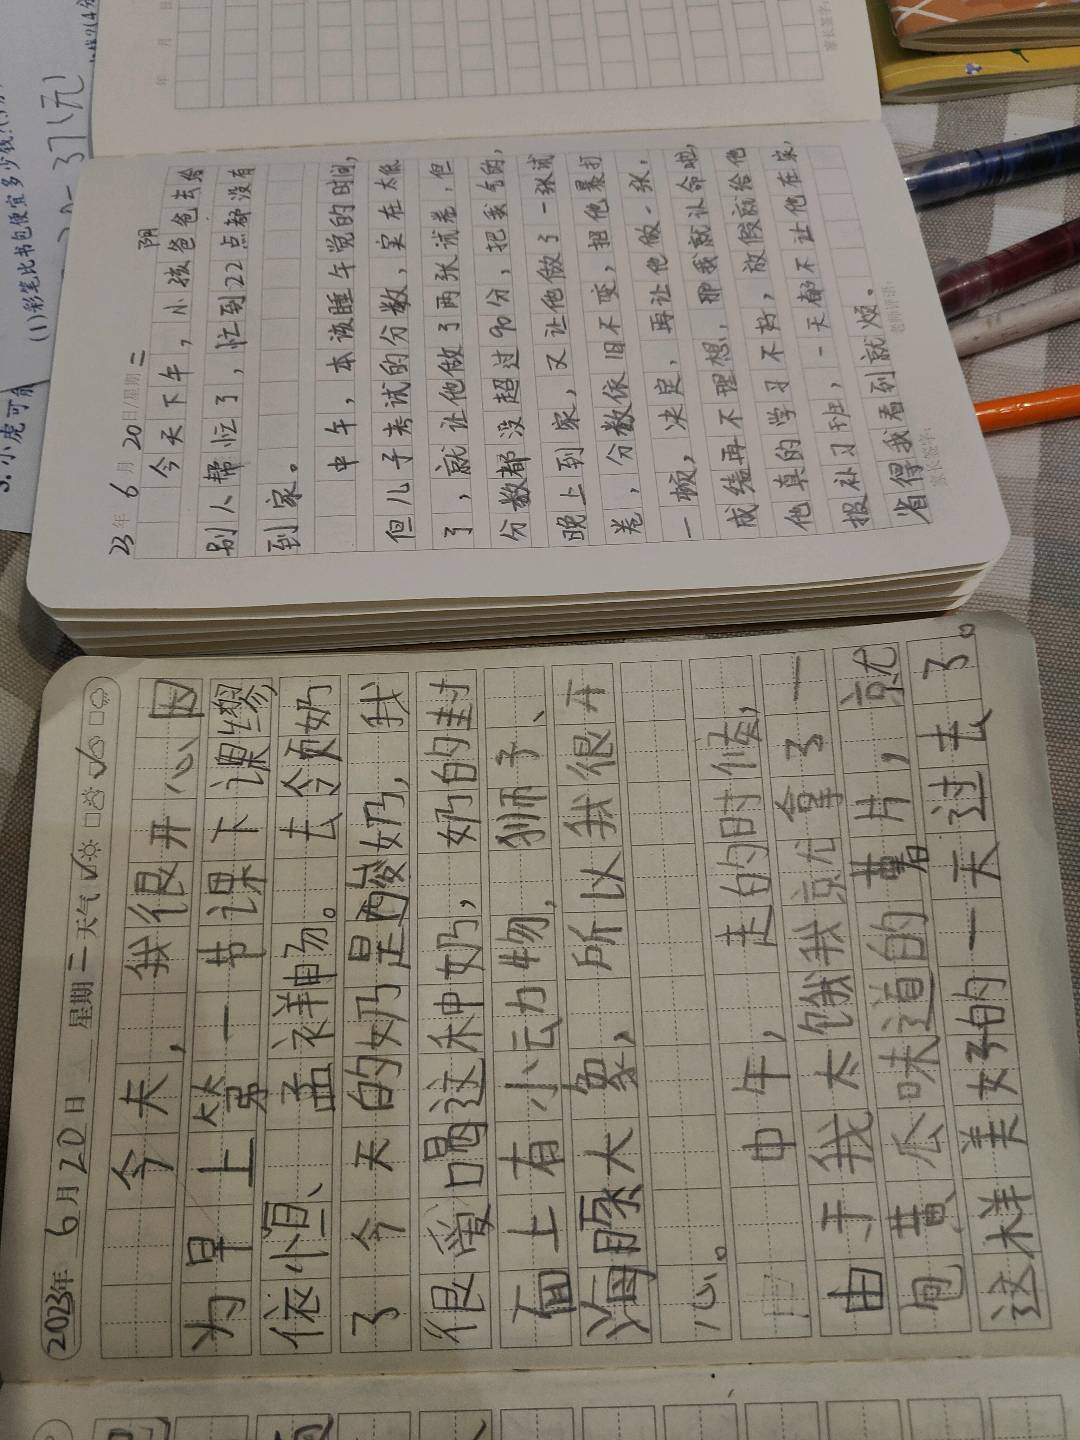 23年 6月 20日/星期二 阴
今天下午，小孩爸爸去给
别人帮忙了，忙到22点都没有
到家。
中午，本该睡午觉的时间，
但儿子考试的分数，实在太低
了，就让他做了两张试卷，但
分数都没超过90分，把我气的，
晚上到家，又让他做了一张试
卷，分数依旧不变，把他暴打
一顿，决定，再让他做一张，
成绩再不理想，那我就认命啦，
他真的学习不好，放假就给他
报补习班，一天都不让他在家，
省得我看到就烦。
老师评语：
家长签字：
2023年 6月20日 星期二 天气
今天，我很开心，因
为早上第一节课下课缪
依恒、孟祥畅。去领奶
了今天的奶是酸奶，我
很爱喝这种奶，奶的封
面上有小动物，狮子、
海豚大象，所以我很开
心。
中午，走的时候，
由于我太饿我就拿了一
包黄瓜味道的薯片，就
这样美好的一天过去了。
(1)彩笔比书包便宜多少钱?
5.小虎可
37元
年 月
家长签字：